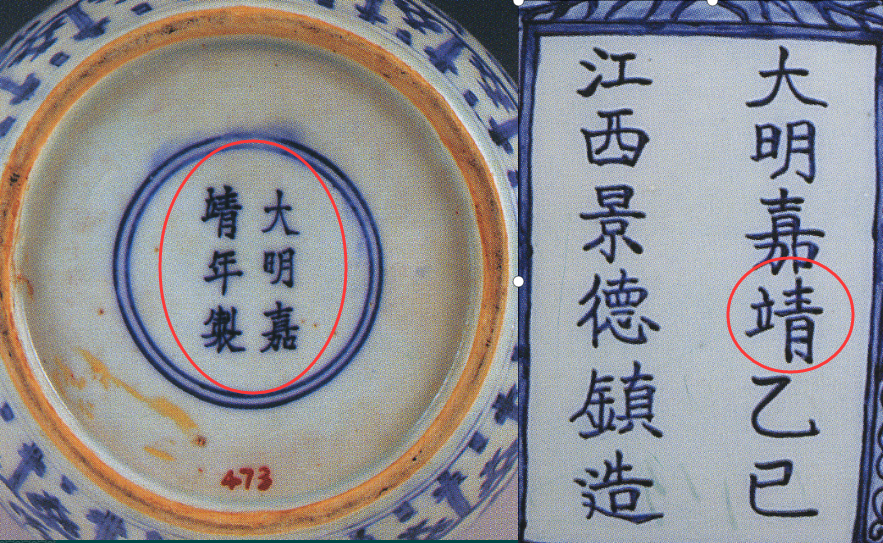 大明嘉
靖年製
473
大明嘉靖乙巳
江西景德鎮造